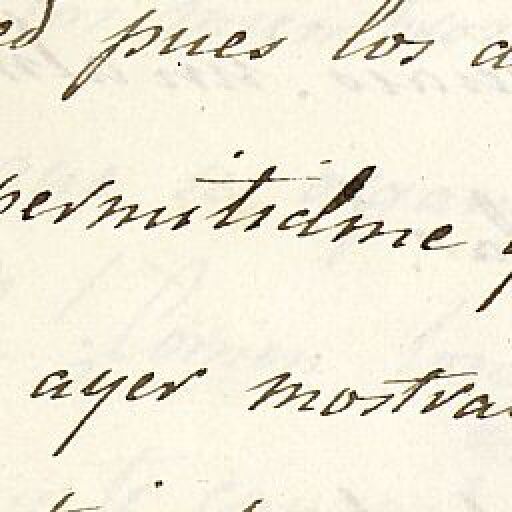 ed pues los a
permitidme
ayer mostra